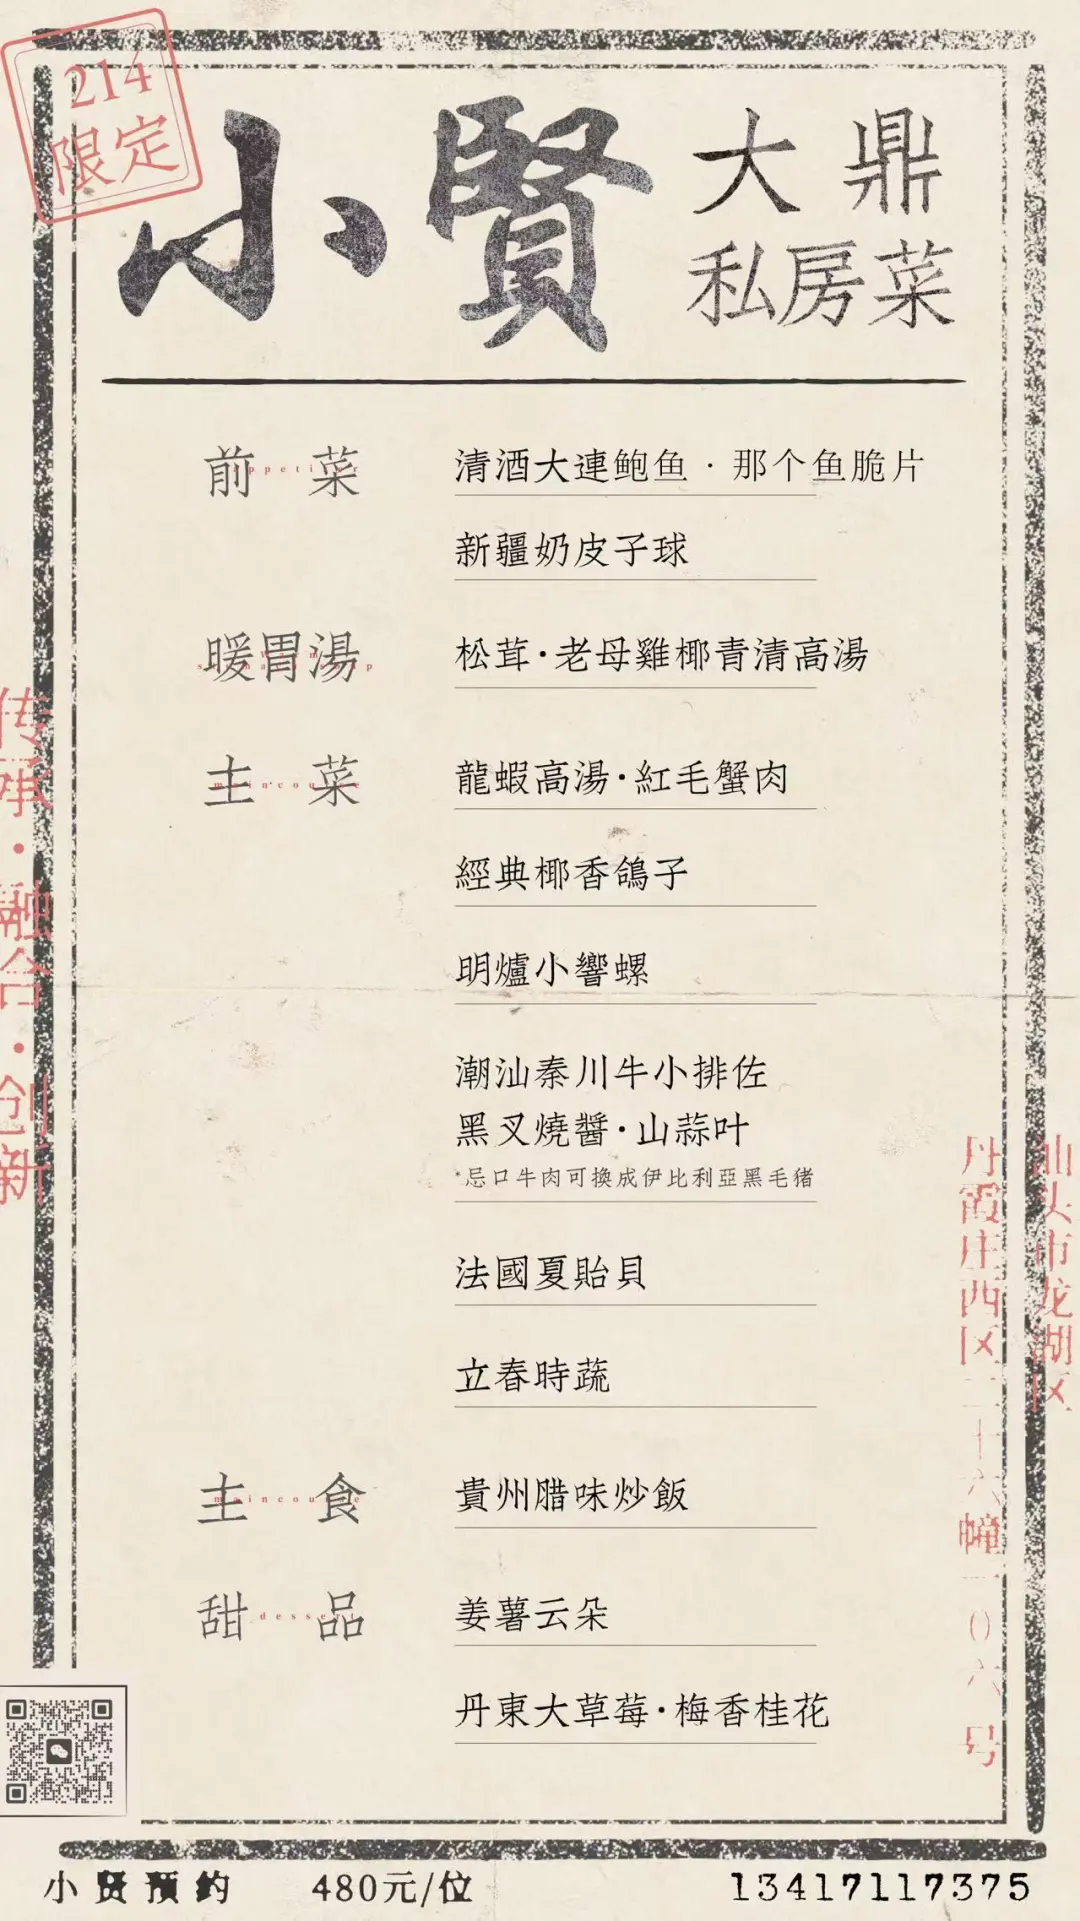 214
限定
小賢
大鼎
私房菜
前菜
清酒大連鲍鱼·那个鱼脆片
新疆奶皮子球
暖胃湯
松茸·老母雞椰青清高湯
主菜
maincourse
龍蝦高湯·紅毛蟹肉
經典椰香鴿子
明爐小響螺
潮汕秦川牛小排佐
黑叉燒醬·山蒜叶
*忌口牛肉可換成伊比利亞黑毛猪
法國夏貽貝
立春時蔬
主食
maincourse
貴州腊味炒飯
甜品
dessert
姜薯云朵
丹東大草莓·梅香桂花
传承·融合·创新
汕头市龙湖区
丹霞庄西区二十六幢一0六号
小贤预约
480元/位
13417117375